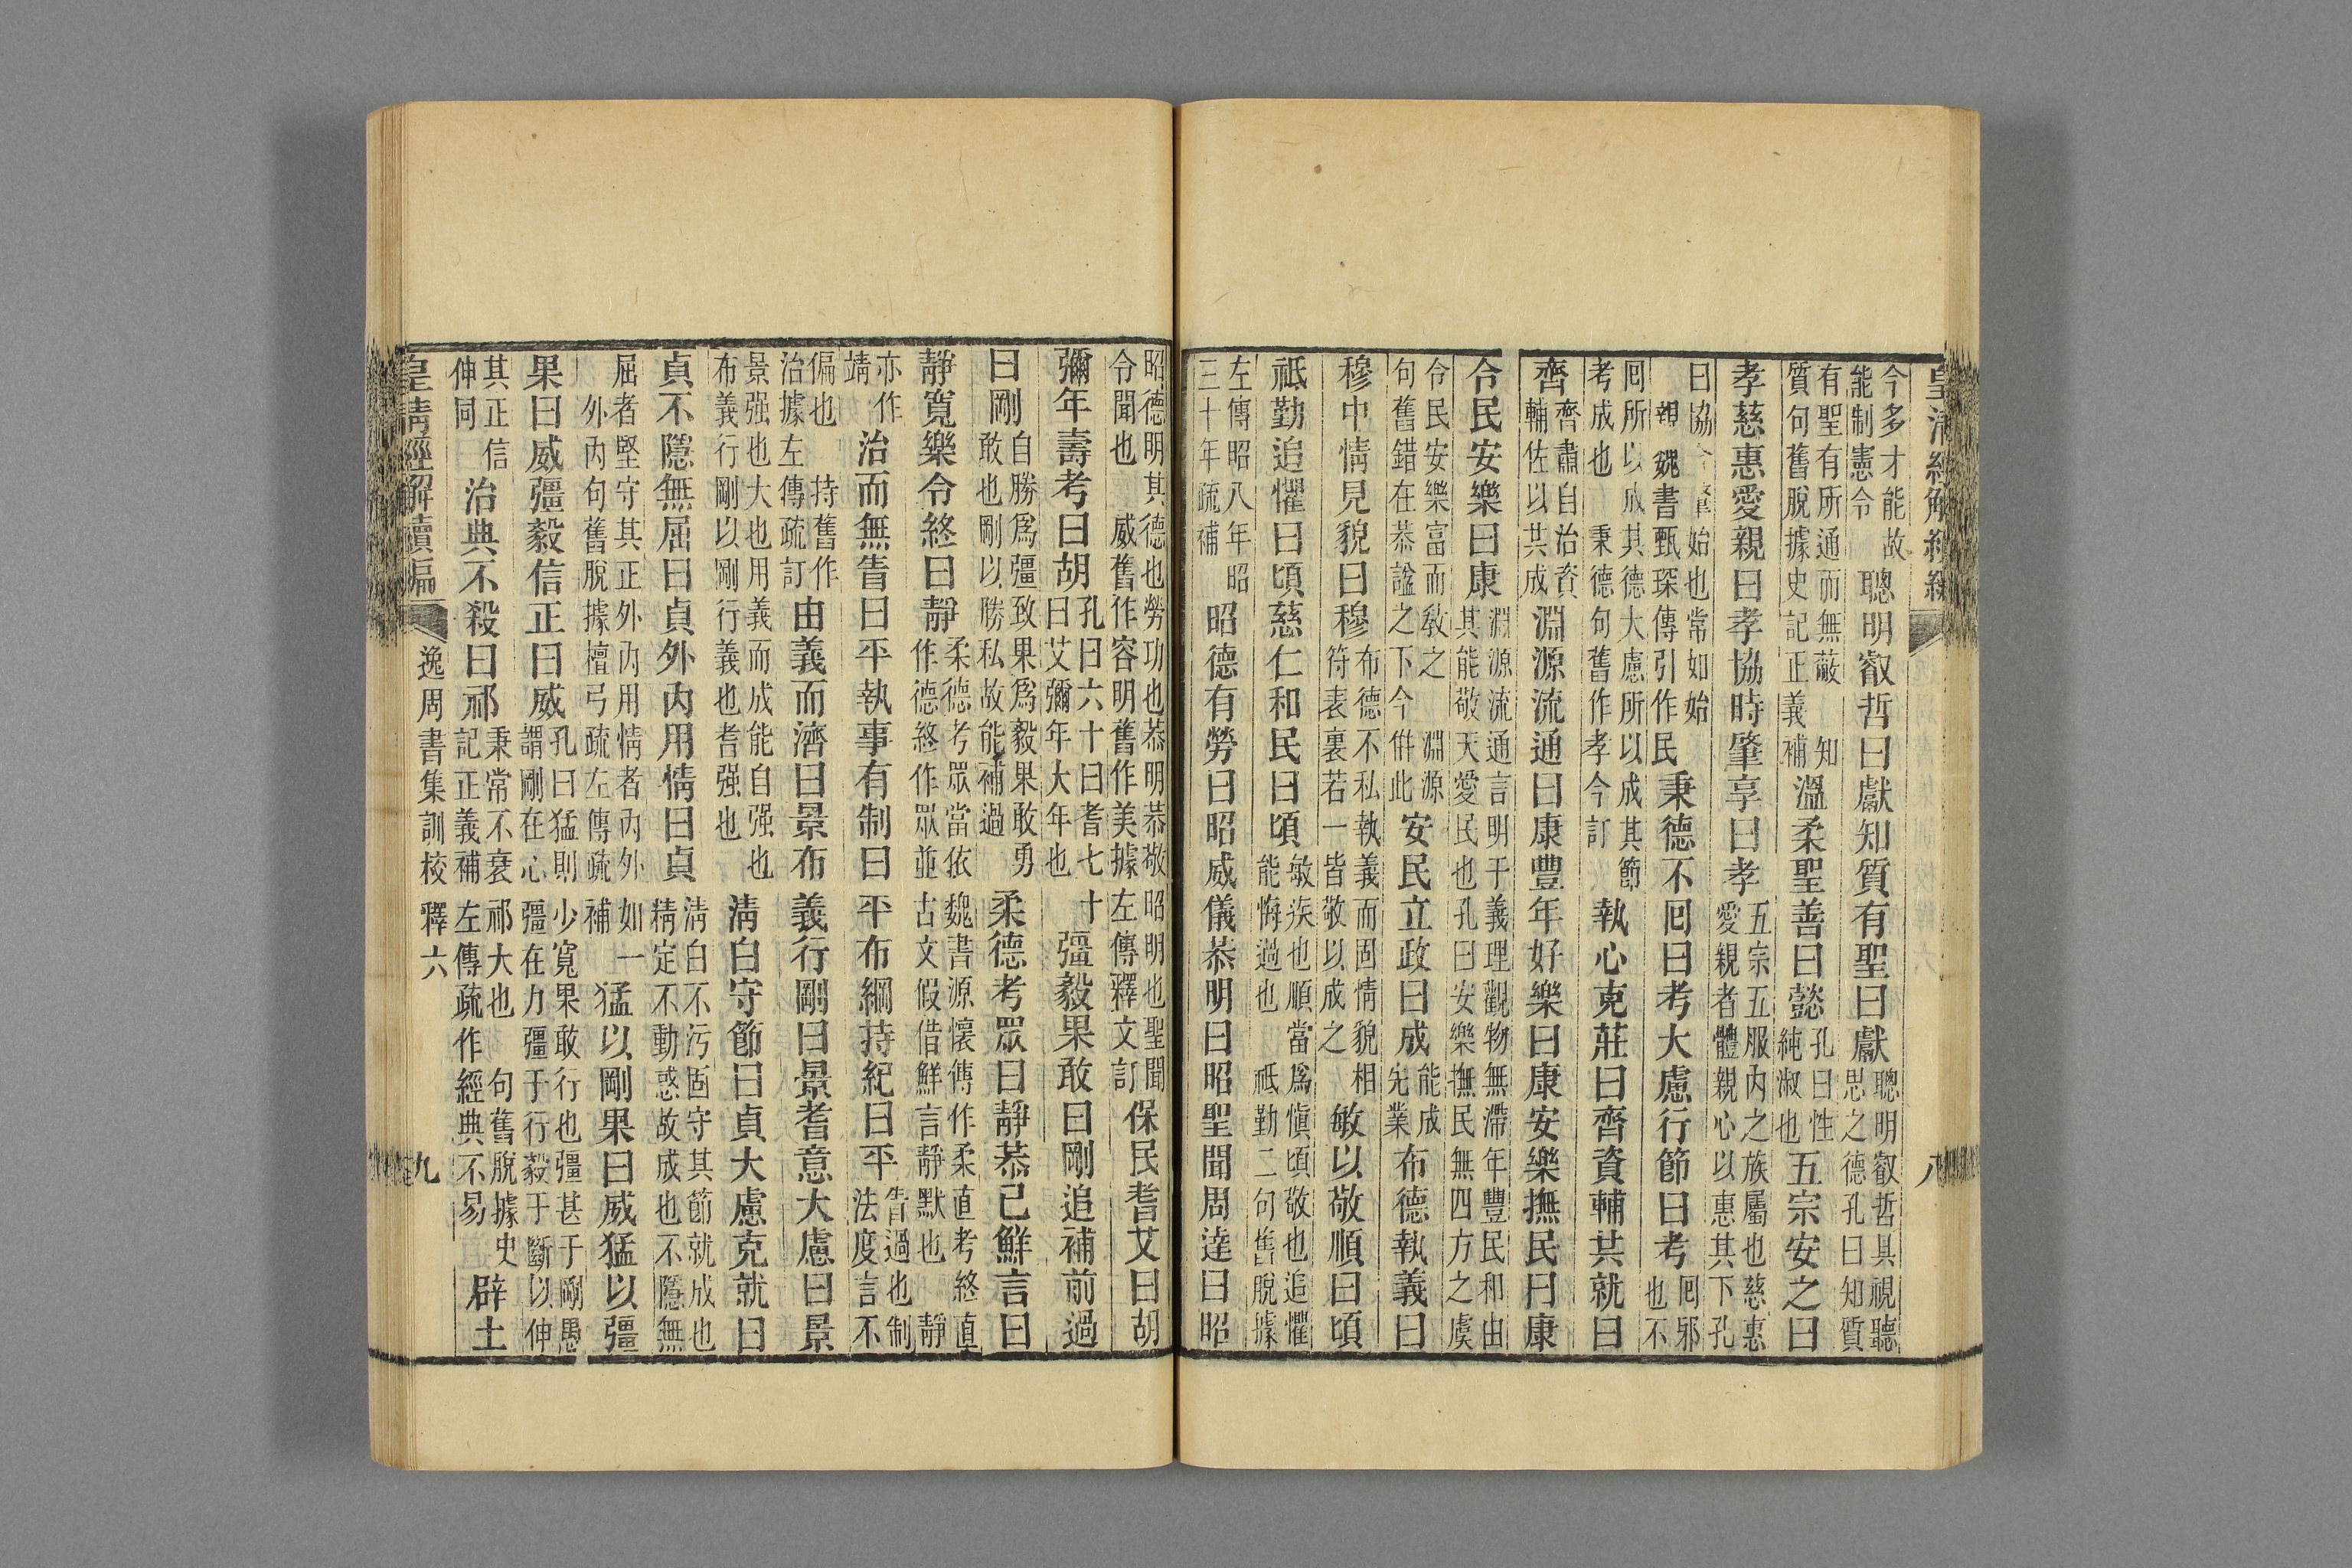 皇清經解續編 八
今多才能故能制憲令 聰明叡哲曰獻知質有聖曰獻聰明叡哲具視聽思之德孔曰知質
有聖有所通而無蔽 知質句舊脫據史記正義補溫柔聖善曰懿孔曰性純淑也五宗安之曰
孝慈惠愛親曰孝協時肇享曰孝五宗五服內之族屬也慈惠愛親者體親心以惠其下孔
曰協合肇始也常如始 親魏書甄琛傳引作民秉德不囘曰考大慮行節曰考囘邪也不
囘所以成其德大慮所以成其節考成也 秉德句舊作孝今訂執心克莊曰齊資輔共就曰
齊齊肅自治資輔佐以共成淵源流通曰康豐年好樂曰康安樂撫民曰康
令民安樂曰康淵源流通言明于義理觀物無滯年豐民和由其能敬天愛民也孔曰安樂撫民無四方之虞
令民安樂富而敎之 淵源句舊錯在恭諡之下今倂此安民立政曰成能成先業布德執義曰
穆中情見貌曰穆布德不私執義而固情貌相符表裏若一皆敬以成之敏以敬順曰頃
祗勤追懼曰頃慈仁和民曰頃敏疾也順當爲愼頃敬也追懼能悔過也 祗勤二句舊脫據
左傳昭八年昭三十年疏補昭德有勞曰昭威儀恭明曰昭聖聞周達曰昭
昭德明其德也勞功也恭明恭敬昭明也聖聞令聞也 威舊作容明舊作美據左傳釋文訂保民耆艾曰胡
彌年壽考曰胡孔曰六十曰耆七十曰艾彌年大年也彊毅果敢曰剛追補前過
曰剛自勝爲彊致果爲毅果敢勇敢也剛以勝私故能補過柔德考眾曰靜恭己鮮言曰
靜寬樂令終曰靜柔德考眾當依魏書源懷傳作柔直考終直作德終作眾並古文假借鮮言靜默也 靜
亦作靖治而無眚曰平執事有制曰平布綱持紀曰平眚過也制法度言不
偏也 持舊作治據左傳疏訂由義而濟曰景布義行剛曰景耆意大慮曰景
景强也大也用義而成能自强也布義行剛以剛行義也耆强也清白守節曰貞大慮克就曰
貞不隱無屈曰貞外內用情曰貞清白不污固守其節就成也精定不動惑故成也不隱無
屈者堅守其正外內用情者內外如一 外內句舊脫據檀弓疏左傳疏補猛以剛果曰威猛以彊
果曰威彊毅信正曰威孔曰猛則少寬果敢行也彊甚于剛愚謂剛在心彊在力彊于行毅于斷以伸
其正 信伸同治典不殺曰祁秉常不衰祁大也 句舊脫據史記正義補左傳疏作經典不易辟土
皇清經解續編 逸周書集訓校釋六 九